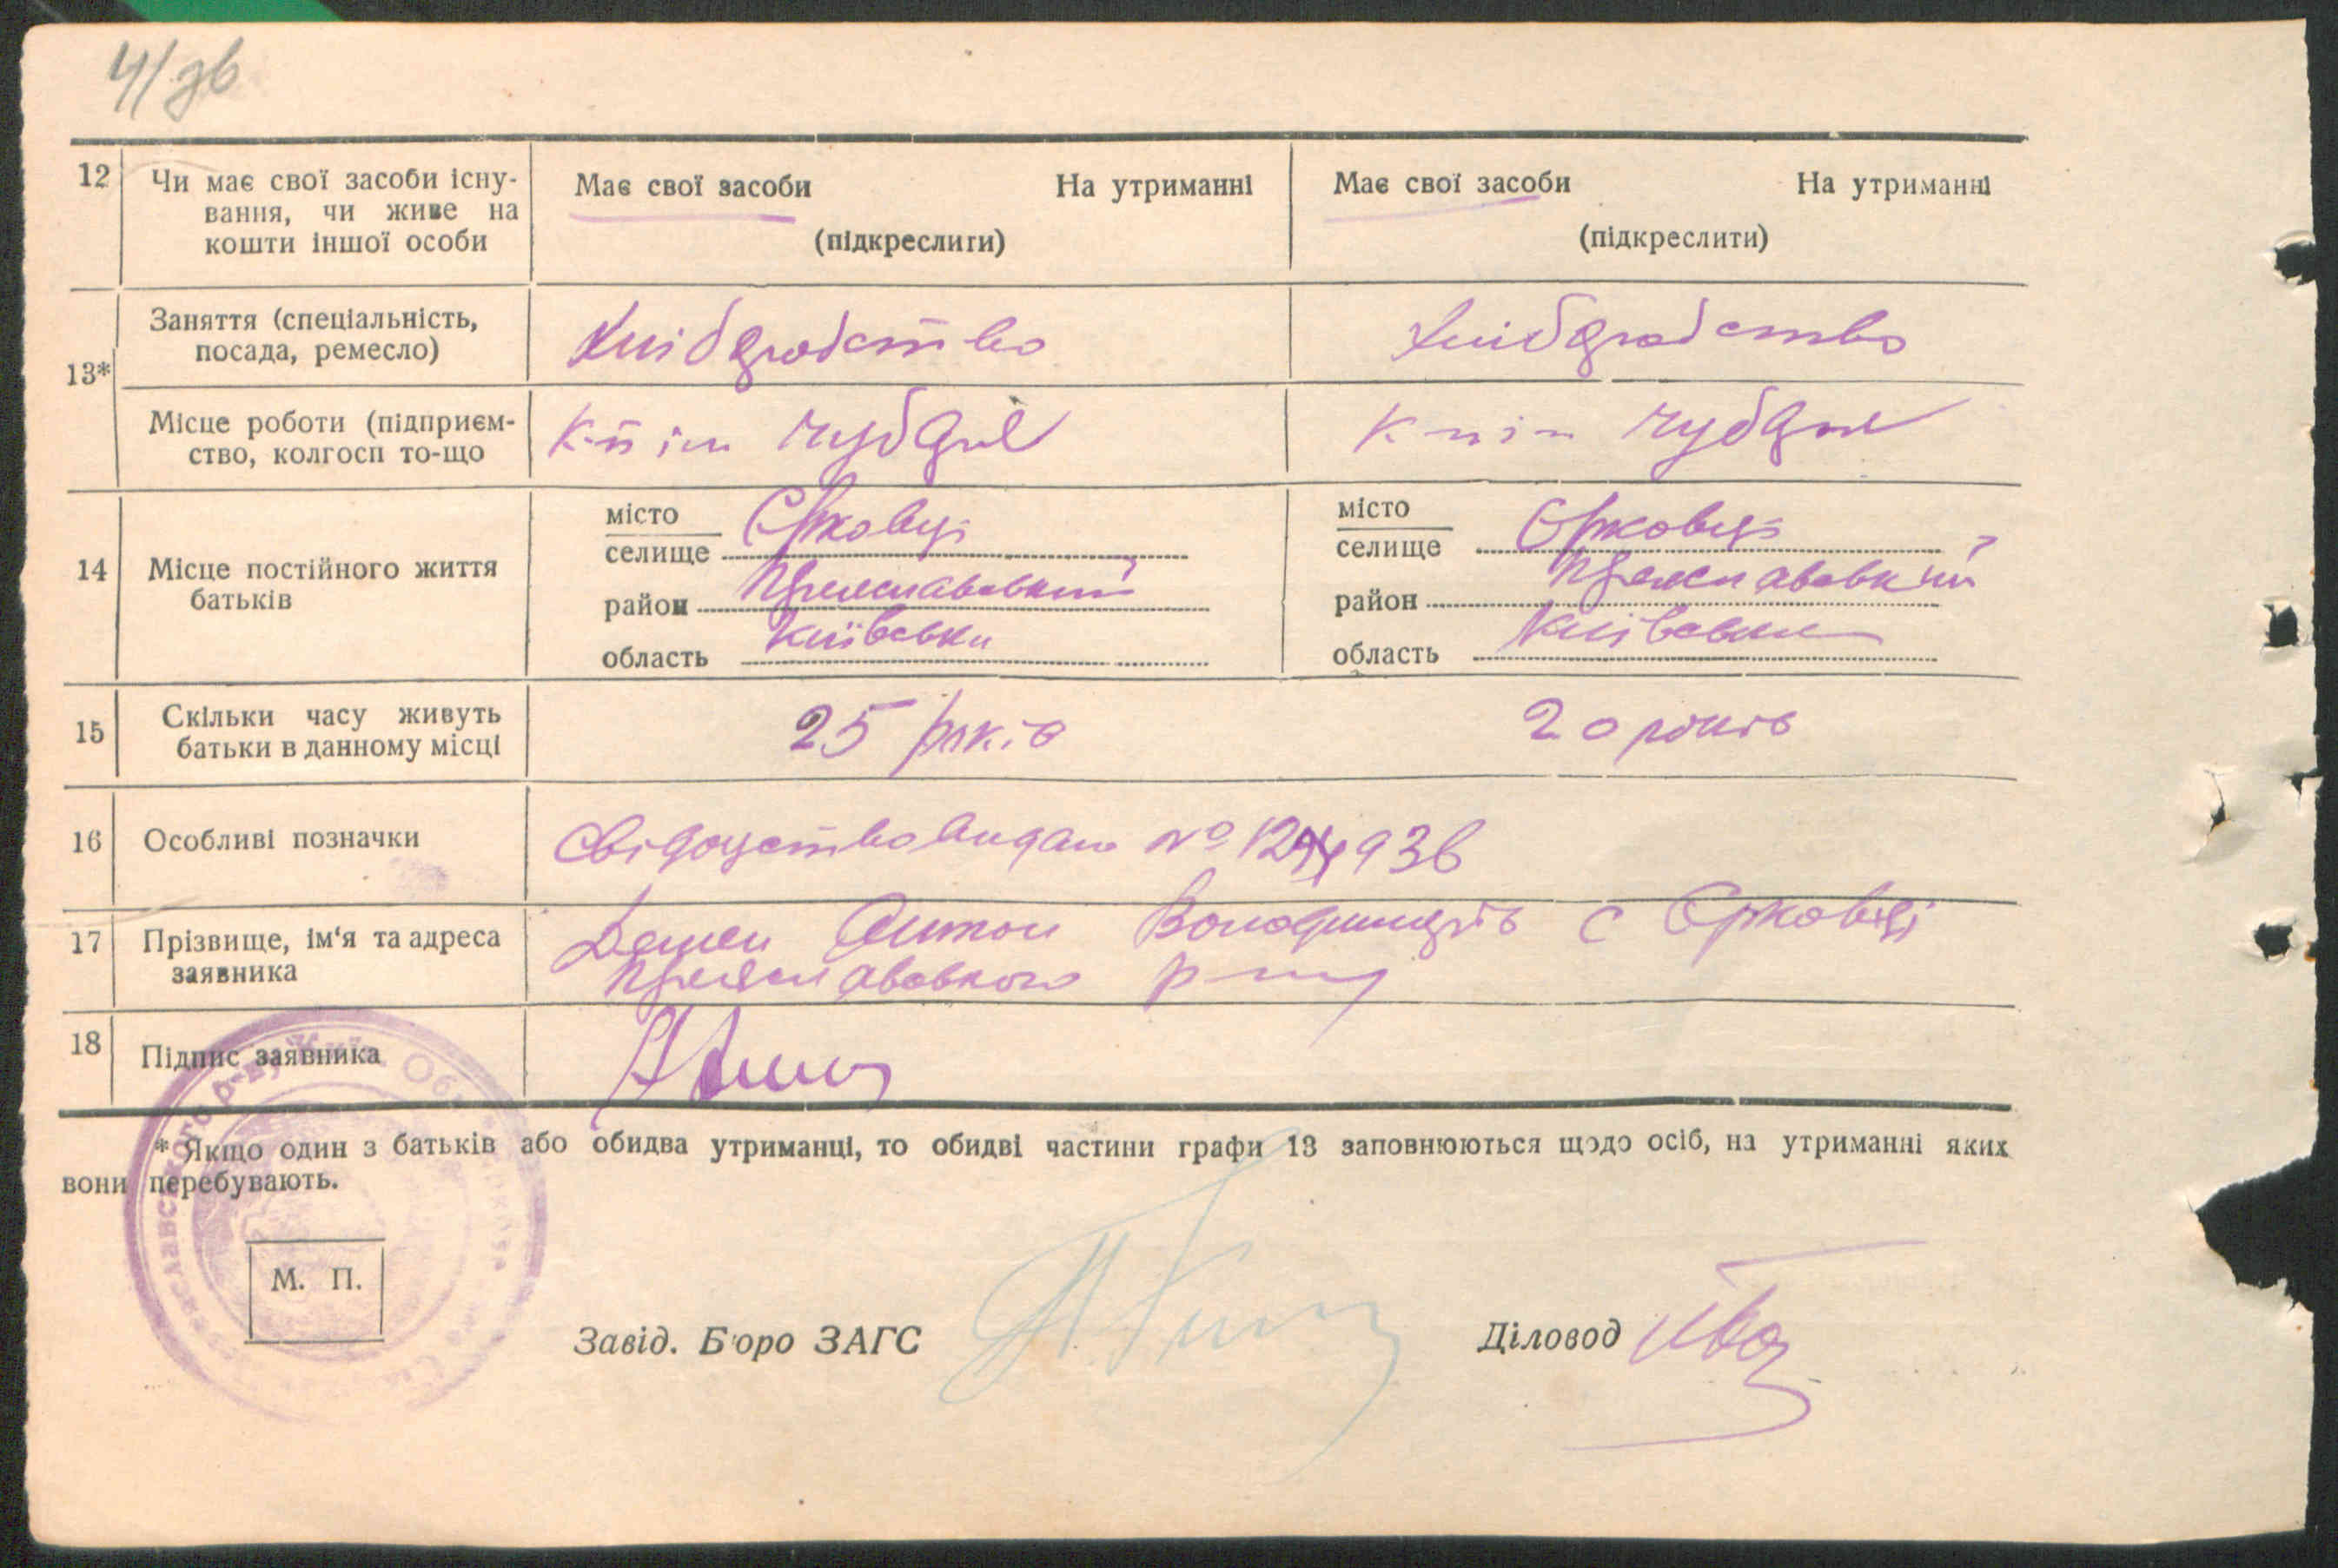 4/зв
12 Чи має свої засоби існу-
вання, чи живе на
кошти іншої особи
Має свої засоби На утриманні
(підкреслити)
Має свої засоби На утриманні
(підкреслити)
13*
Заняття (спеціальність,
посада, ремесло)
Хлібдробство
Хлібдробство
Місце роботи (підприєм-
ство, колгосп то-що
14 Місце постійного життя
батьків
місто
селище Єрковці
район Переяславський
область Київська
місто
селище Єрковці
район Переяславський
область Київська
15 Скільки часу живуть
батьки в данному місці
25 років
20 років
16 Особливі позначки
Свідоцтво видано №
17 Прізвище, ім'я та адреса
заявника
Антон с Єрковці
Переяславського р-ну
18 Підпис заявника
* Якщо один з батьків або обидва утриманці, то обидві частини графи 13 заповнюються щодо осіб, на утриманні яких
вони перебувають.
М. П.
Завід. Бюро ЗАГС
Діловод